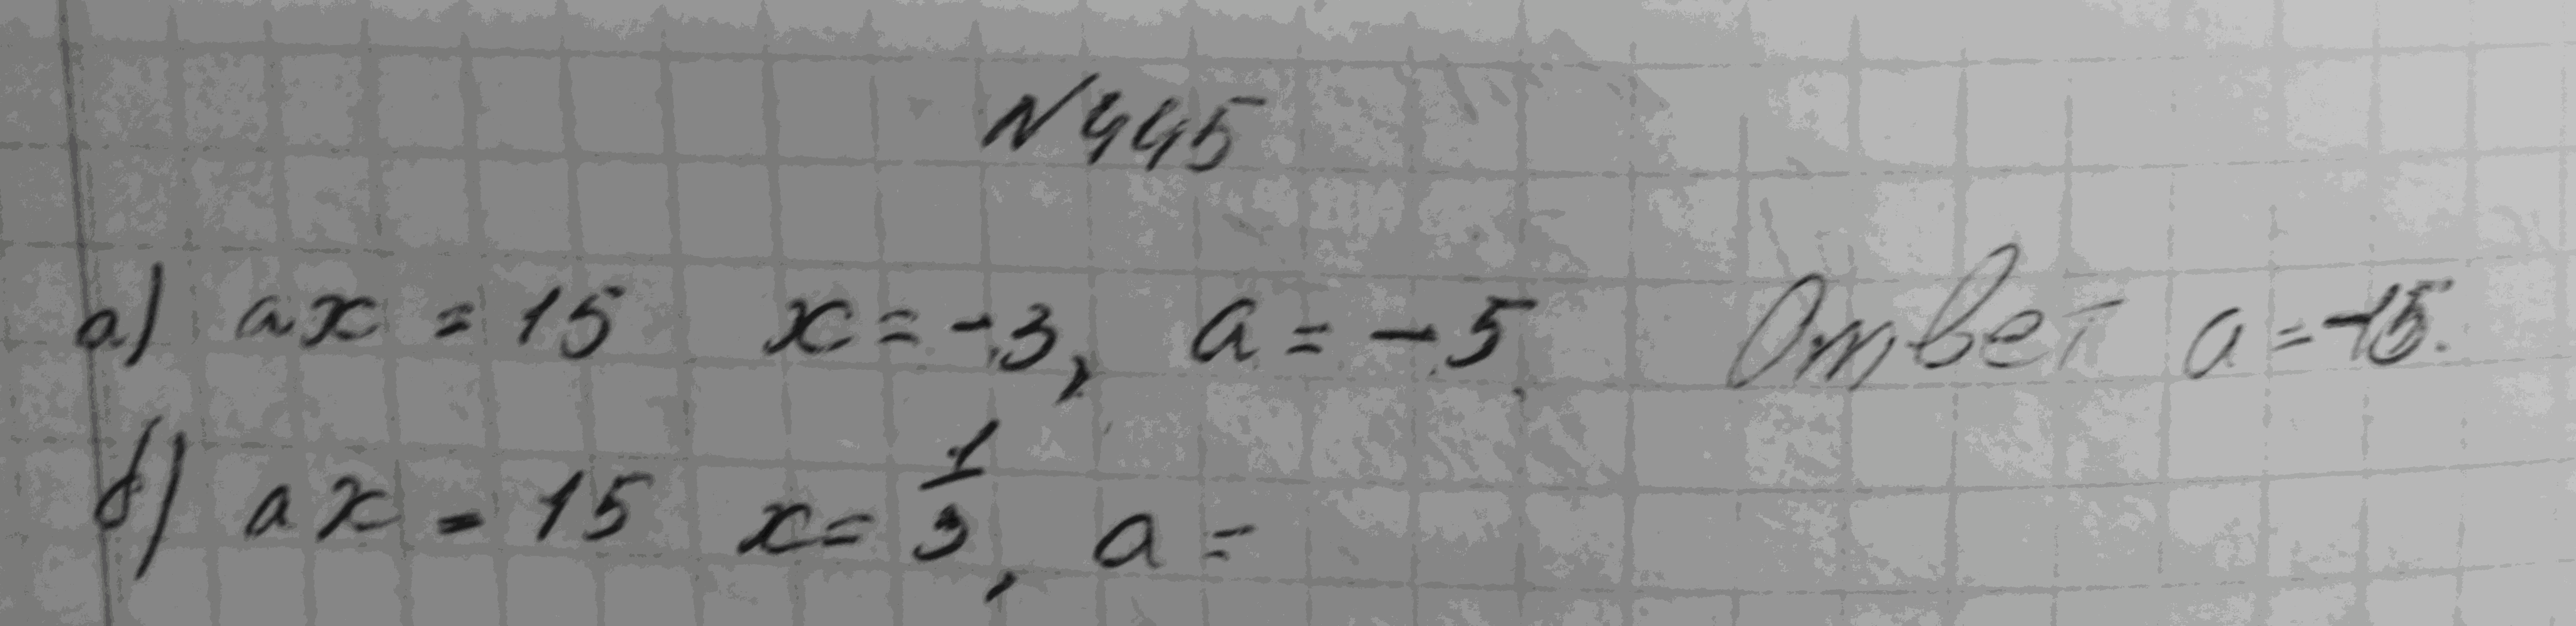 №445
а) ax = 15 x = -3, a = -5. Ответ a = -15.
б) ax = 15 x = 1/3, a =